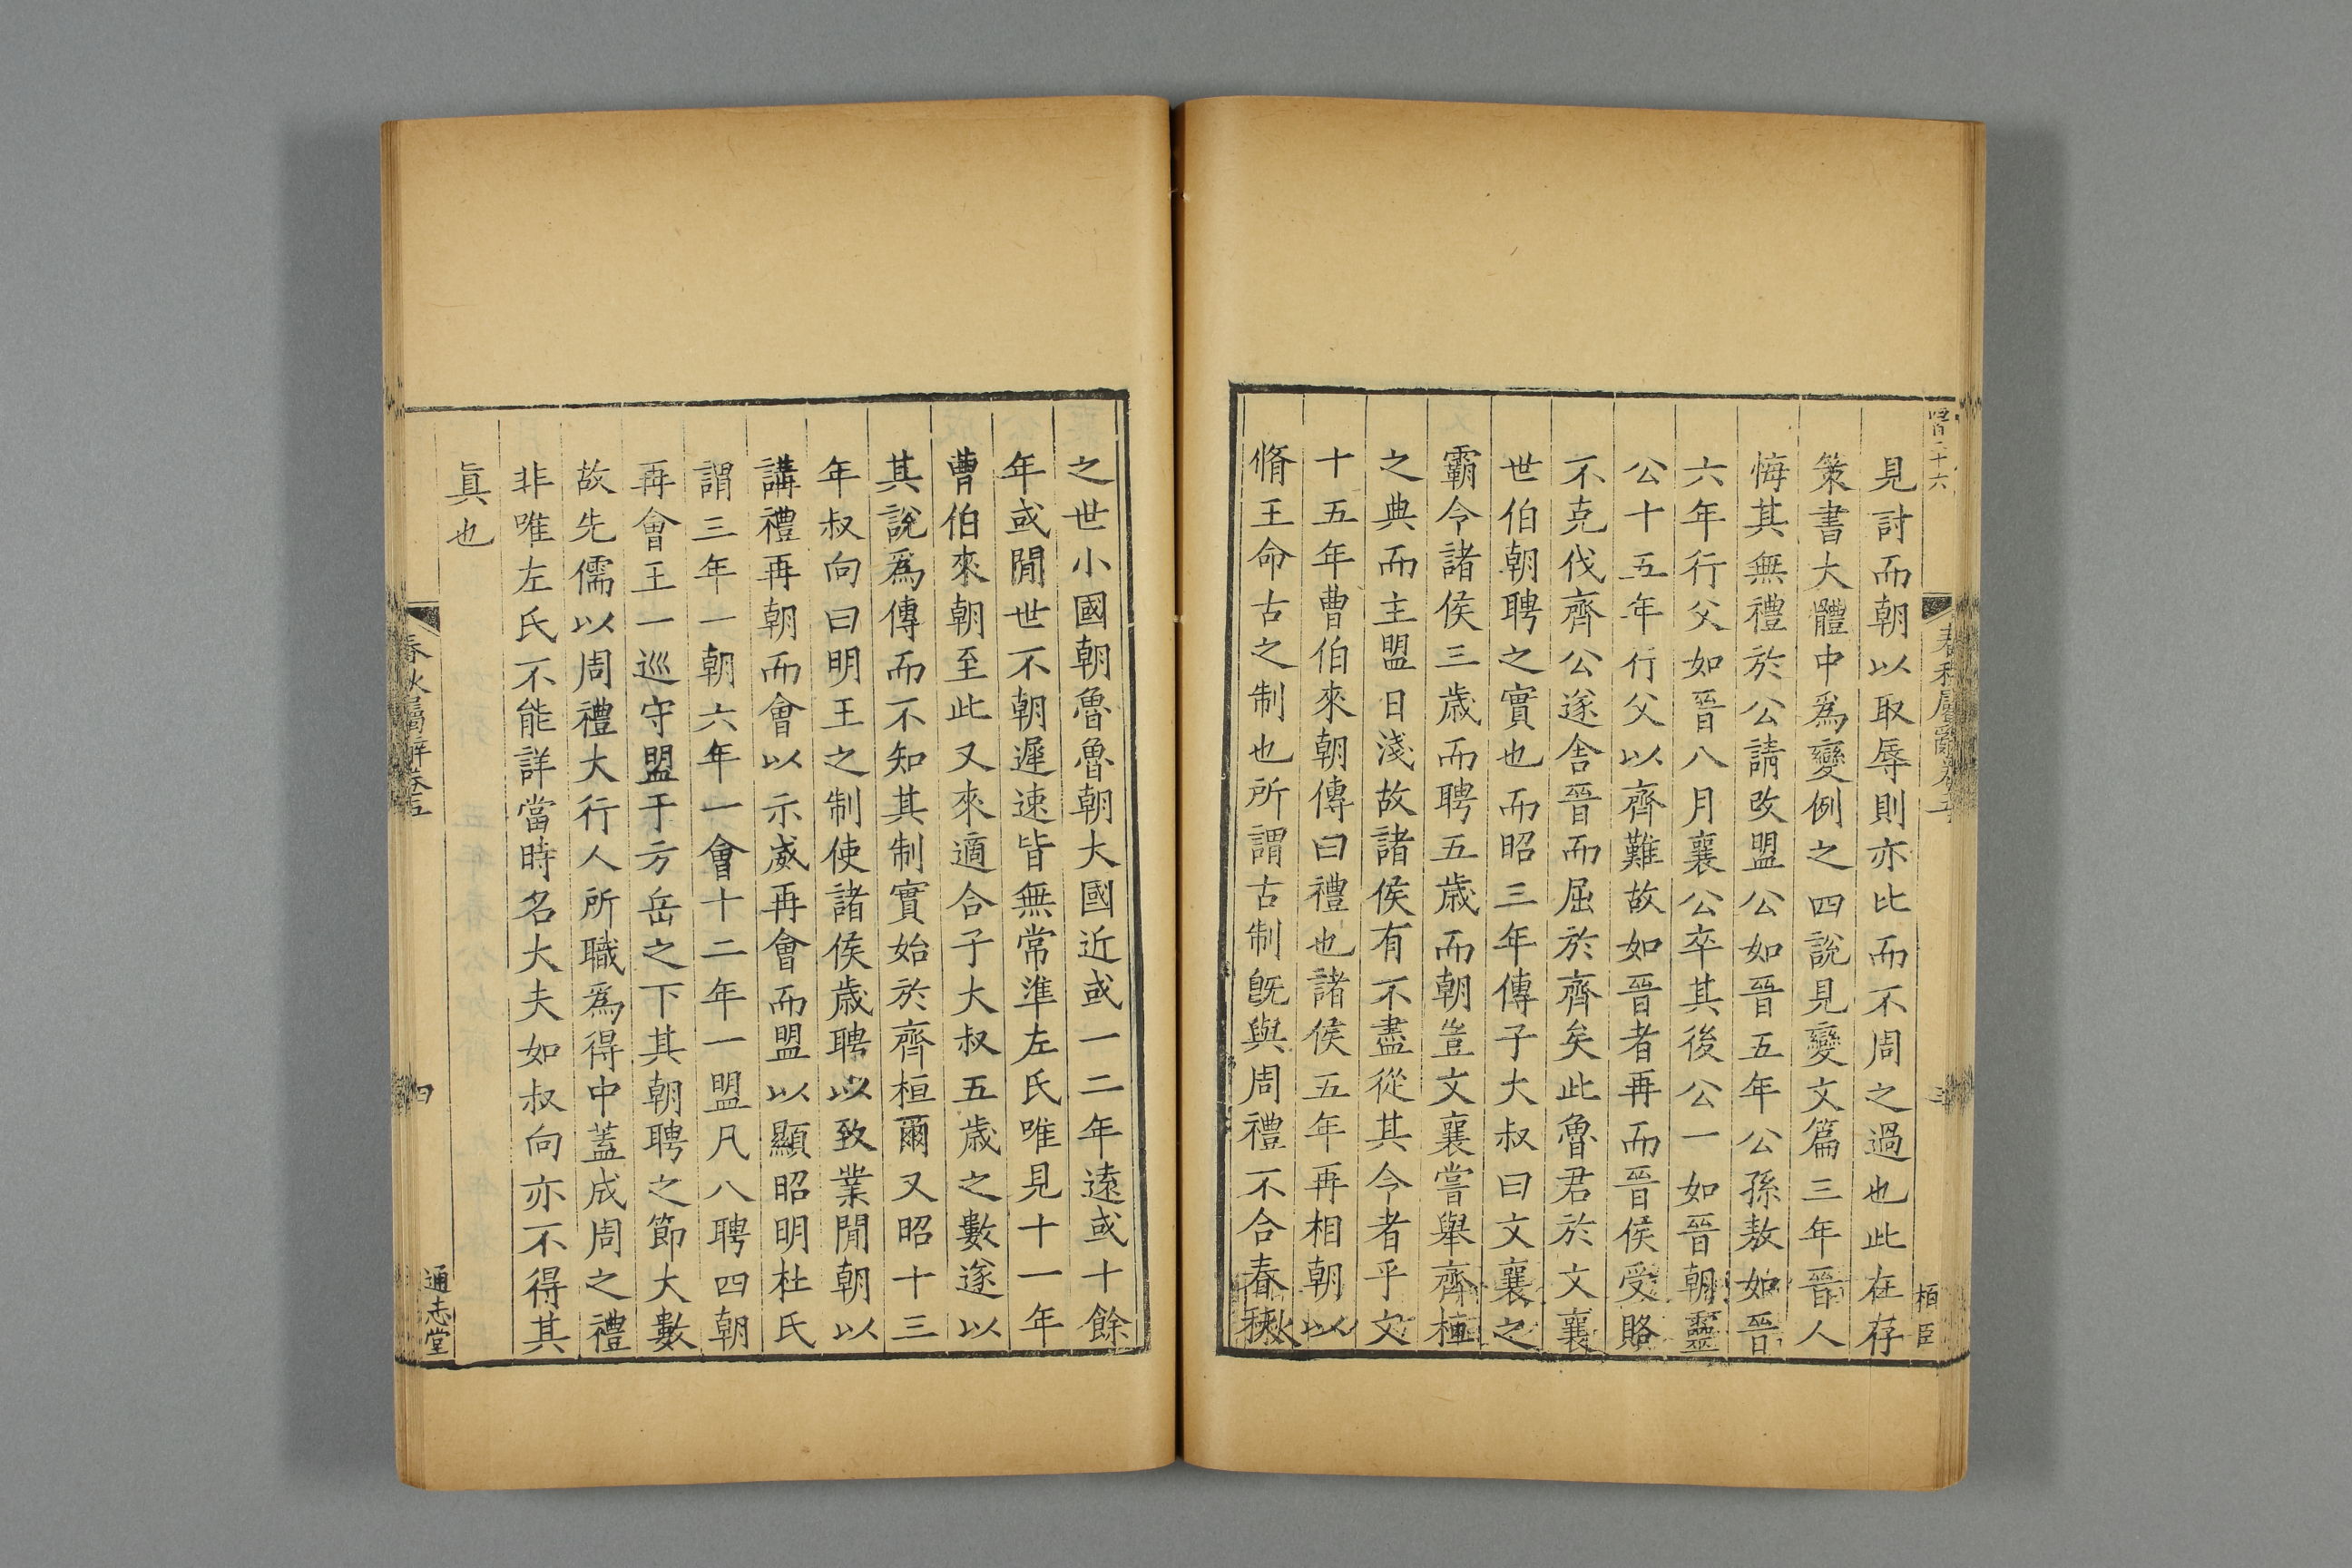 見討而朝以取辱則亦比而不周之過也此在存
策書大體中爲變例之四說見變文篇三年晉人
悔其無禮於公請改盟公如晉五年公孫敖如晉
六年行父如晉八月襄公卒其後公一如晉朝靈
公十五年行父以齊難故如晉者再而晉侯受賂
不克伐齊公遂舍晉而屈於齊矣此魯君於文襄
世伯朝聘之實也而昭三年傳子大叔曰文襄之
霸令諸侯三歲而聘五歲而朝豈文襄嘗舉齊桓
之典而主盟日淺故諸侯有不盡從其令者乎文
十五年曹伯來朝傳曰禮也諸侯五年再相朝以
脩王命古之制也所謂古制旣與周禮不合春秋
之世小國朝魯魯朝大國近或一二年遠或十餘
年或閒世不朝遲速皆無常準左氏唯見十一年
曹伯來朝至此又來適合子大叔五歲之數遂以
其說爲傳而不知其制實始於齊桓爾又昭十三
年叔向曰明王之制使諸侯歲聘以致業閒朝以
講禮再朝而會以示威再會而盟以顯昭明杜氏
謂三年一朝六年一會十二年一盟凡八聘四朝
再會王一巡守盟于方岳之下其朝聘之節大數
故先儒以周禮大行人所職爲得中蓋成周之禮
非唯左氏不能詳當時名大夫如叔向亦不得其
眞也
春秋屬辭卷五
四
通志堂